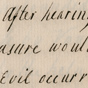 After hearin
asure woul
Evil occurr